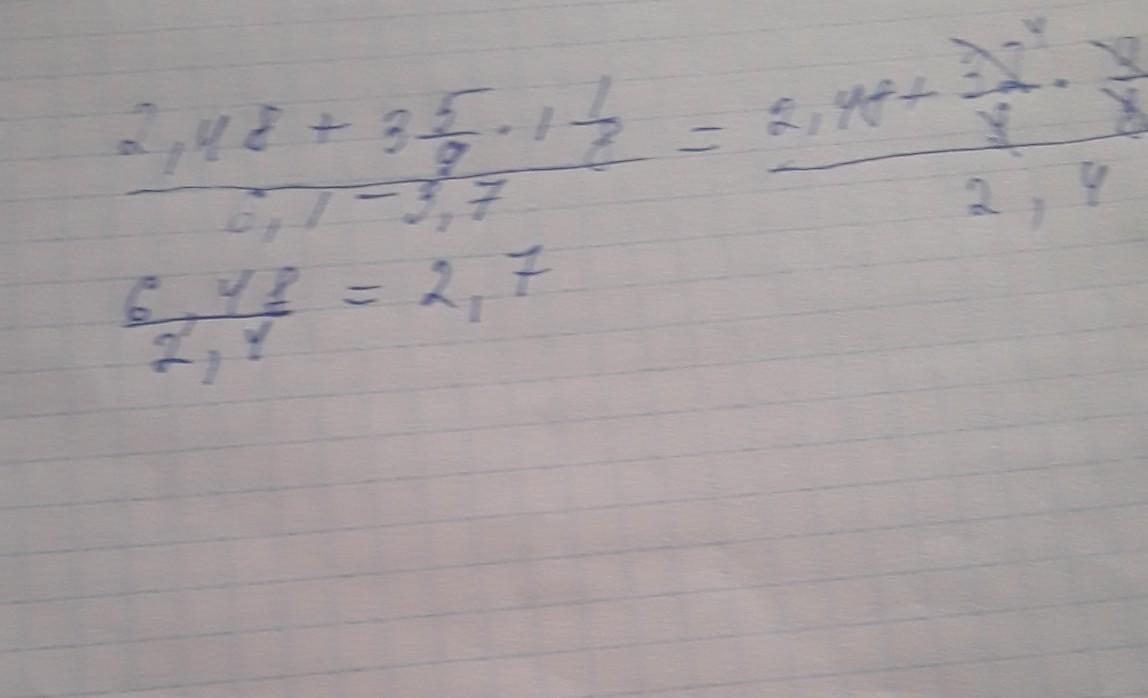 (2,48 + 3 5/9 · 1 1/8) / (6,1 - 3,7) = (2,48 + 32/9 · 9/8) / 2,4
6,48 / 2,4 = 2,7